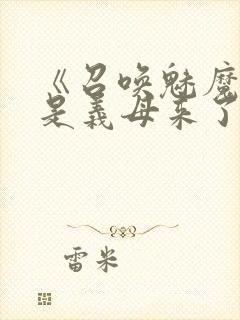 《召唤魅魔
是义母来了
雷米